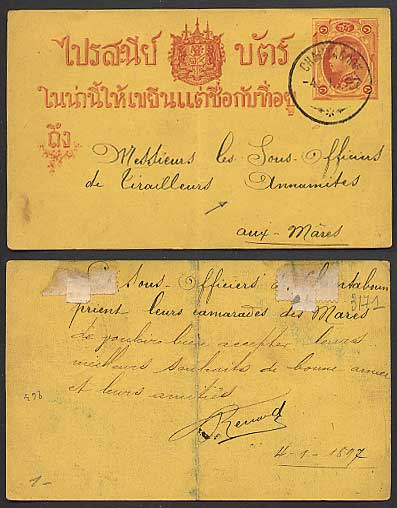 ไปรสนีย์ บัตร์
ในน่านี้ให้เขียนแต่ชื่อกับที่อยู่
ถึง
Messieurs les Sous-Officiers
de Tirailleurs Annamites
aux-Mares
Sous-Officiers
prient leurs camarades des Mares
accepter leurs
meilleurs souhaits de bonne année
et leurs amitiés
Renard
4-1-1897
3171
1-